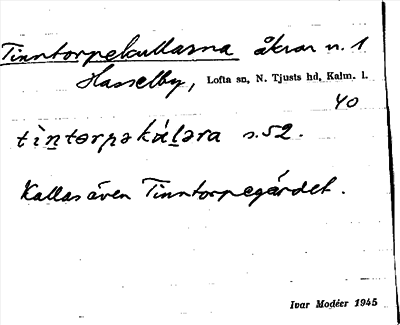 Tinntorpekullarna åkrar n. 1
Hasselby, Lofta sn, N. Tjusts hd, Kalm. l.
40
tìntorpəkálərа s. 52.
Kallas även Tinntorpegärdet.
Ivar Modéer 1945